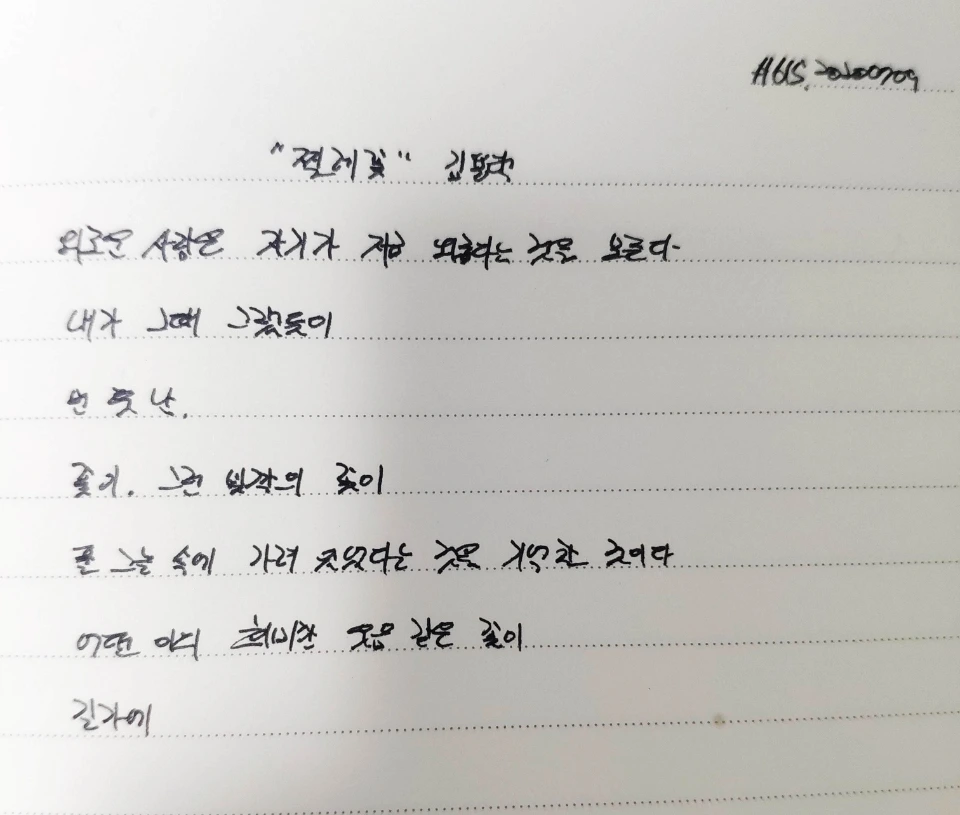 "찔레꽃" 김
외로운 사람은 자기가 지금 외롭다는 것을 모른다
내가 그때 그랬듯이
먼 훗날.
꽃이. 그런 빛깔의 꽃이
푼 그늘 속에 가려 있었다는 것을 기억한 것이다
어떤 아득 희미한 웃음 같은 꽃이
길가에